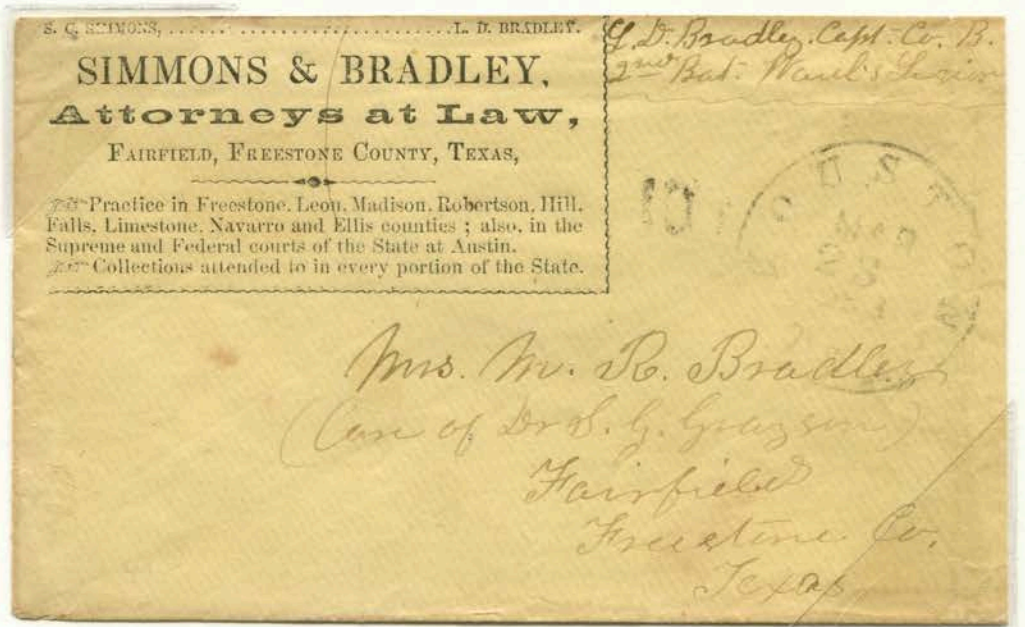 S. C. SIMMONS, ............................ L. D. BRADLEY.
SIMMONS & BRADLEY,
Attorneys at Law,
FAIRFIELD, FREESTONE COUNTY, TEXAS,
Practice in Freestone, Leon, Madison, Robertson, Hill,
Falls, Limestone, Navarro and Ellis counties ; also, in the
Supreme and Federal courts of the State at Austin.
Collections attended to in every portion of the State.
L. D. Bradley. Capt. Co. B.
2nd Bat. Waul's Legion
HOUSTON
MAR
23
Mrs. M. R. Bradley
(Care of Dr S. G. Grayson)
Fairfield
Freestone Co.
Texas